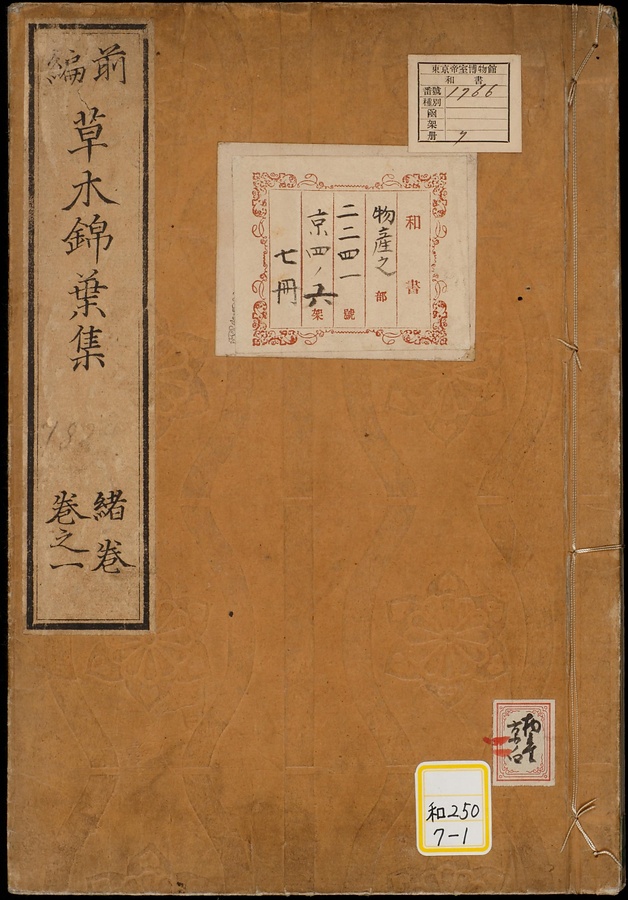 前編
草木錦葉集
緒卷
卷之一
東京帝室博物館
和書
番號 1766
種別
函
架
冊 7
和書
物產之部
二二四一號
京四ノ六架
七冊
和250
7-1